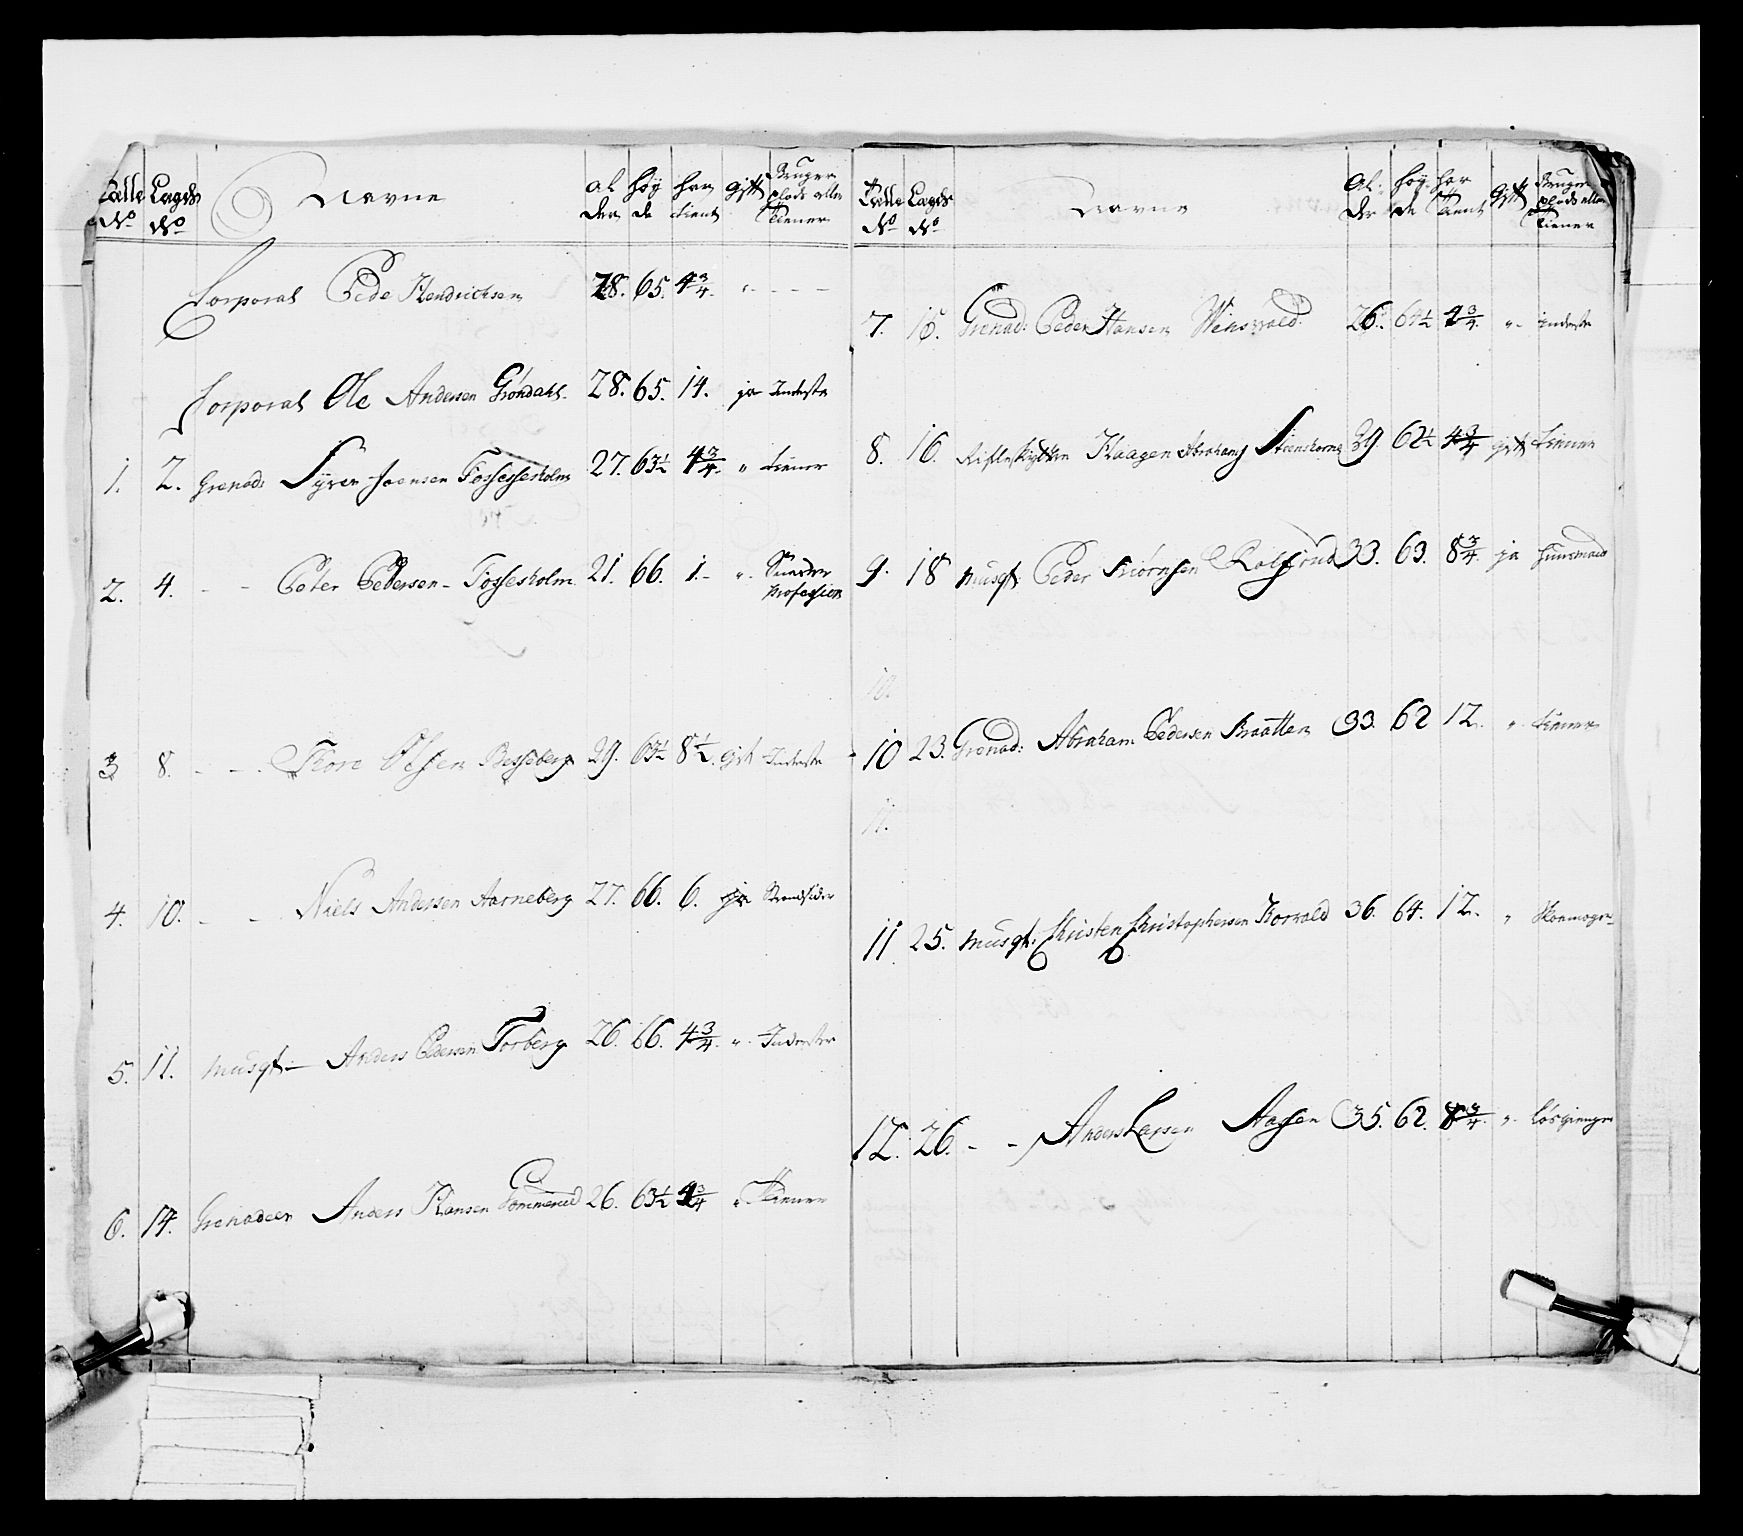 Tælle No Lægds No Navne Al der Høy de har tient gift Bruger plads eller tiener
Corporal Peder Hendrichsen 28. 65. 4 3/4 " - - -
Corporal Ole Andersen Grøndahl 28. 65. 14. ja Inderste
1. 2. Grenad: Syver Joensen Fossesholm 27. 63 1/2 4 3/4 " tiener
2. 4. - - Peter Pedersen - Fossesholm 21. 66. 1. - "
Profession
3 8. - - Thore Olsen Besseberg 29. 63 1/2 8 1/2 gift Inderste
4. 10. - - Niels Andersen Aarneberg 27. 66. 6. ja Strandsider
5. 11. Musqt: - Anders Pedersen Torberg 26. 66. 4 3/4 " Inderster
6. 14. Grenadeer Anders Hansen Gommerud 26. 63 1/2 4 3/4 " tiener
Tælle No Lægds No Navne Al: der høy: de har tient gift Bruger plads eller tiener
7. 15. Grenad: Peder Hansen Winsvold 26. 64 1/2 4 3/4 " Inderste
8. 16. Haagen Abrahams 39 62 1/2 4 3/4 gift tiener
9. 18 Musqt: Peder Biørnsen Rolfsrud 33. 63. 8 3/4 ja huusmand
10.
10 23. Grenad: Abraham Pedersen Braatten 33. 62 12. " tiener
11.
11. 25. Musqt: Christen Christophersen Korvald 36. 64. 12. " Skoemager
12. 26. - - Anders Larsen Aassen 35. 62. 8 3/4 " løsgienger